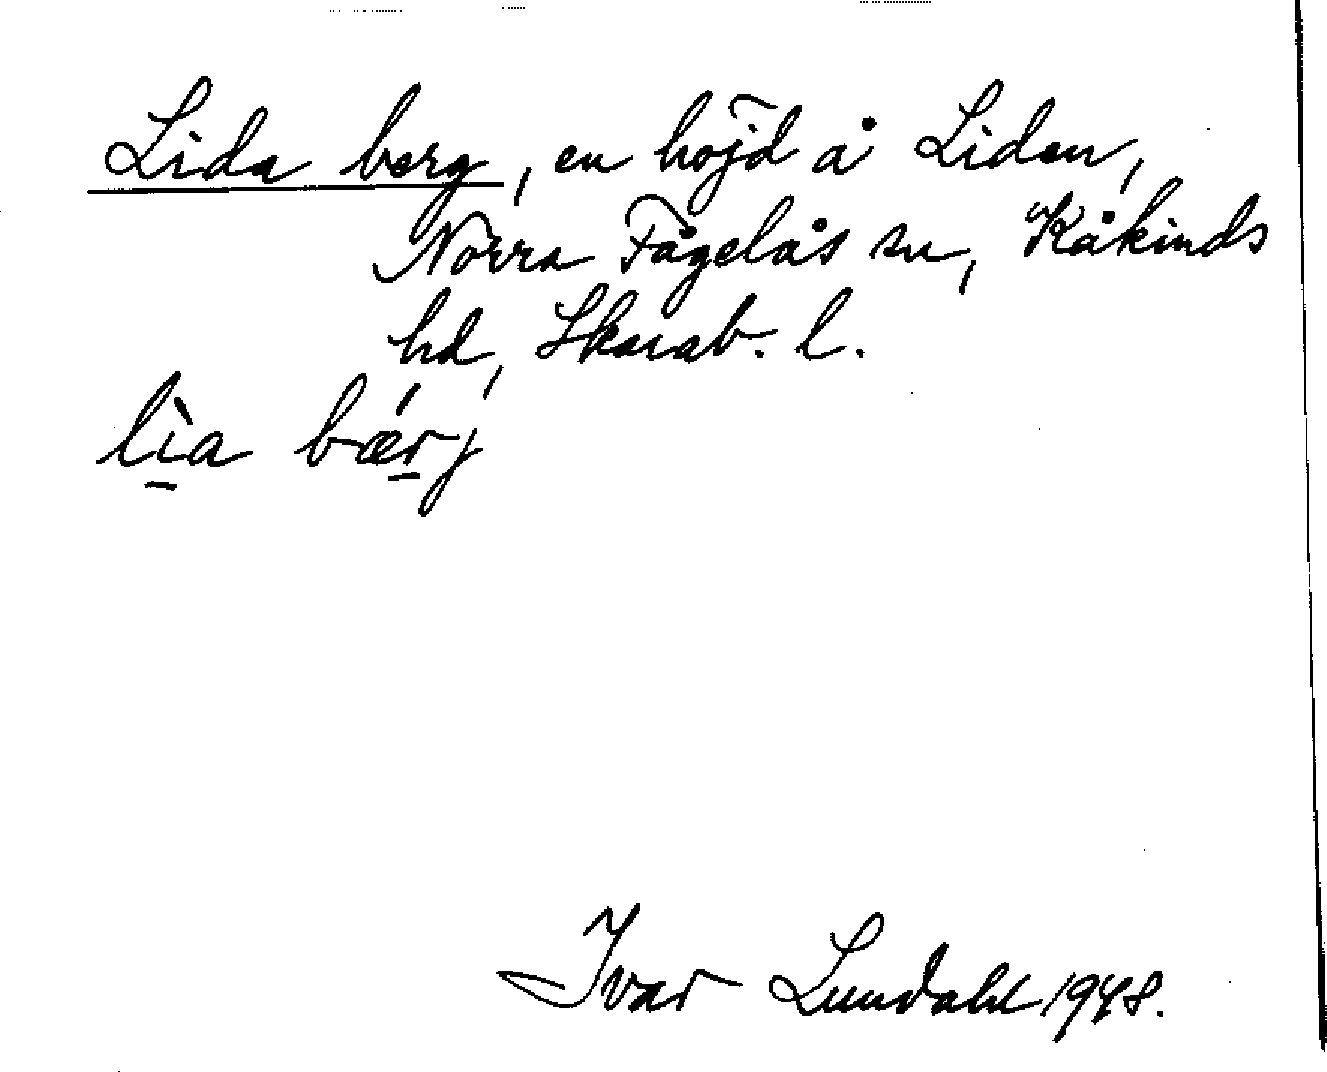 Lida berg, en höjd å Liden,
Norra Fågelås sn, Kåkinds
hd, Skarab. l.
lìa bǽrj
Ivar Lundahl 1948.